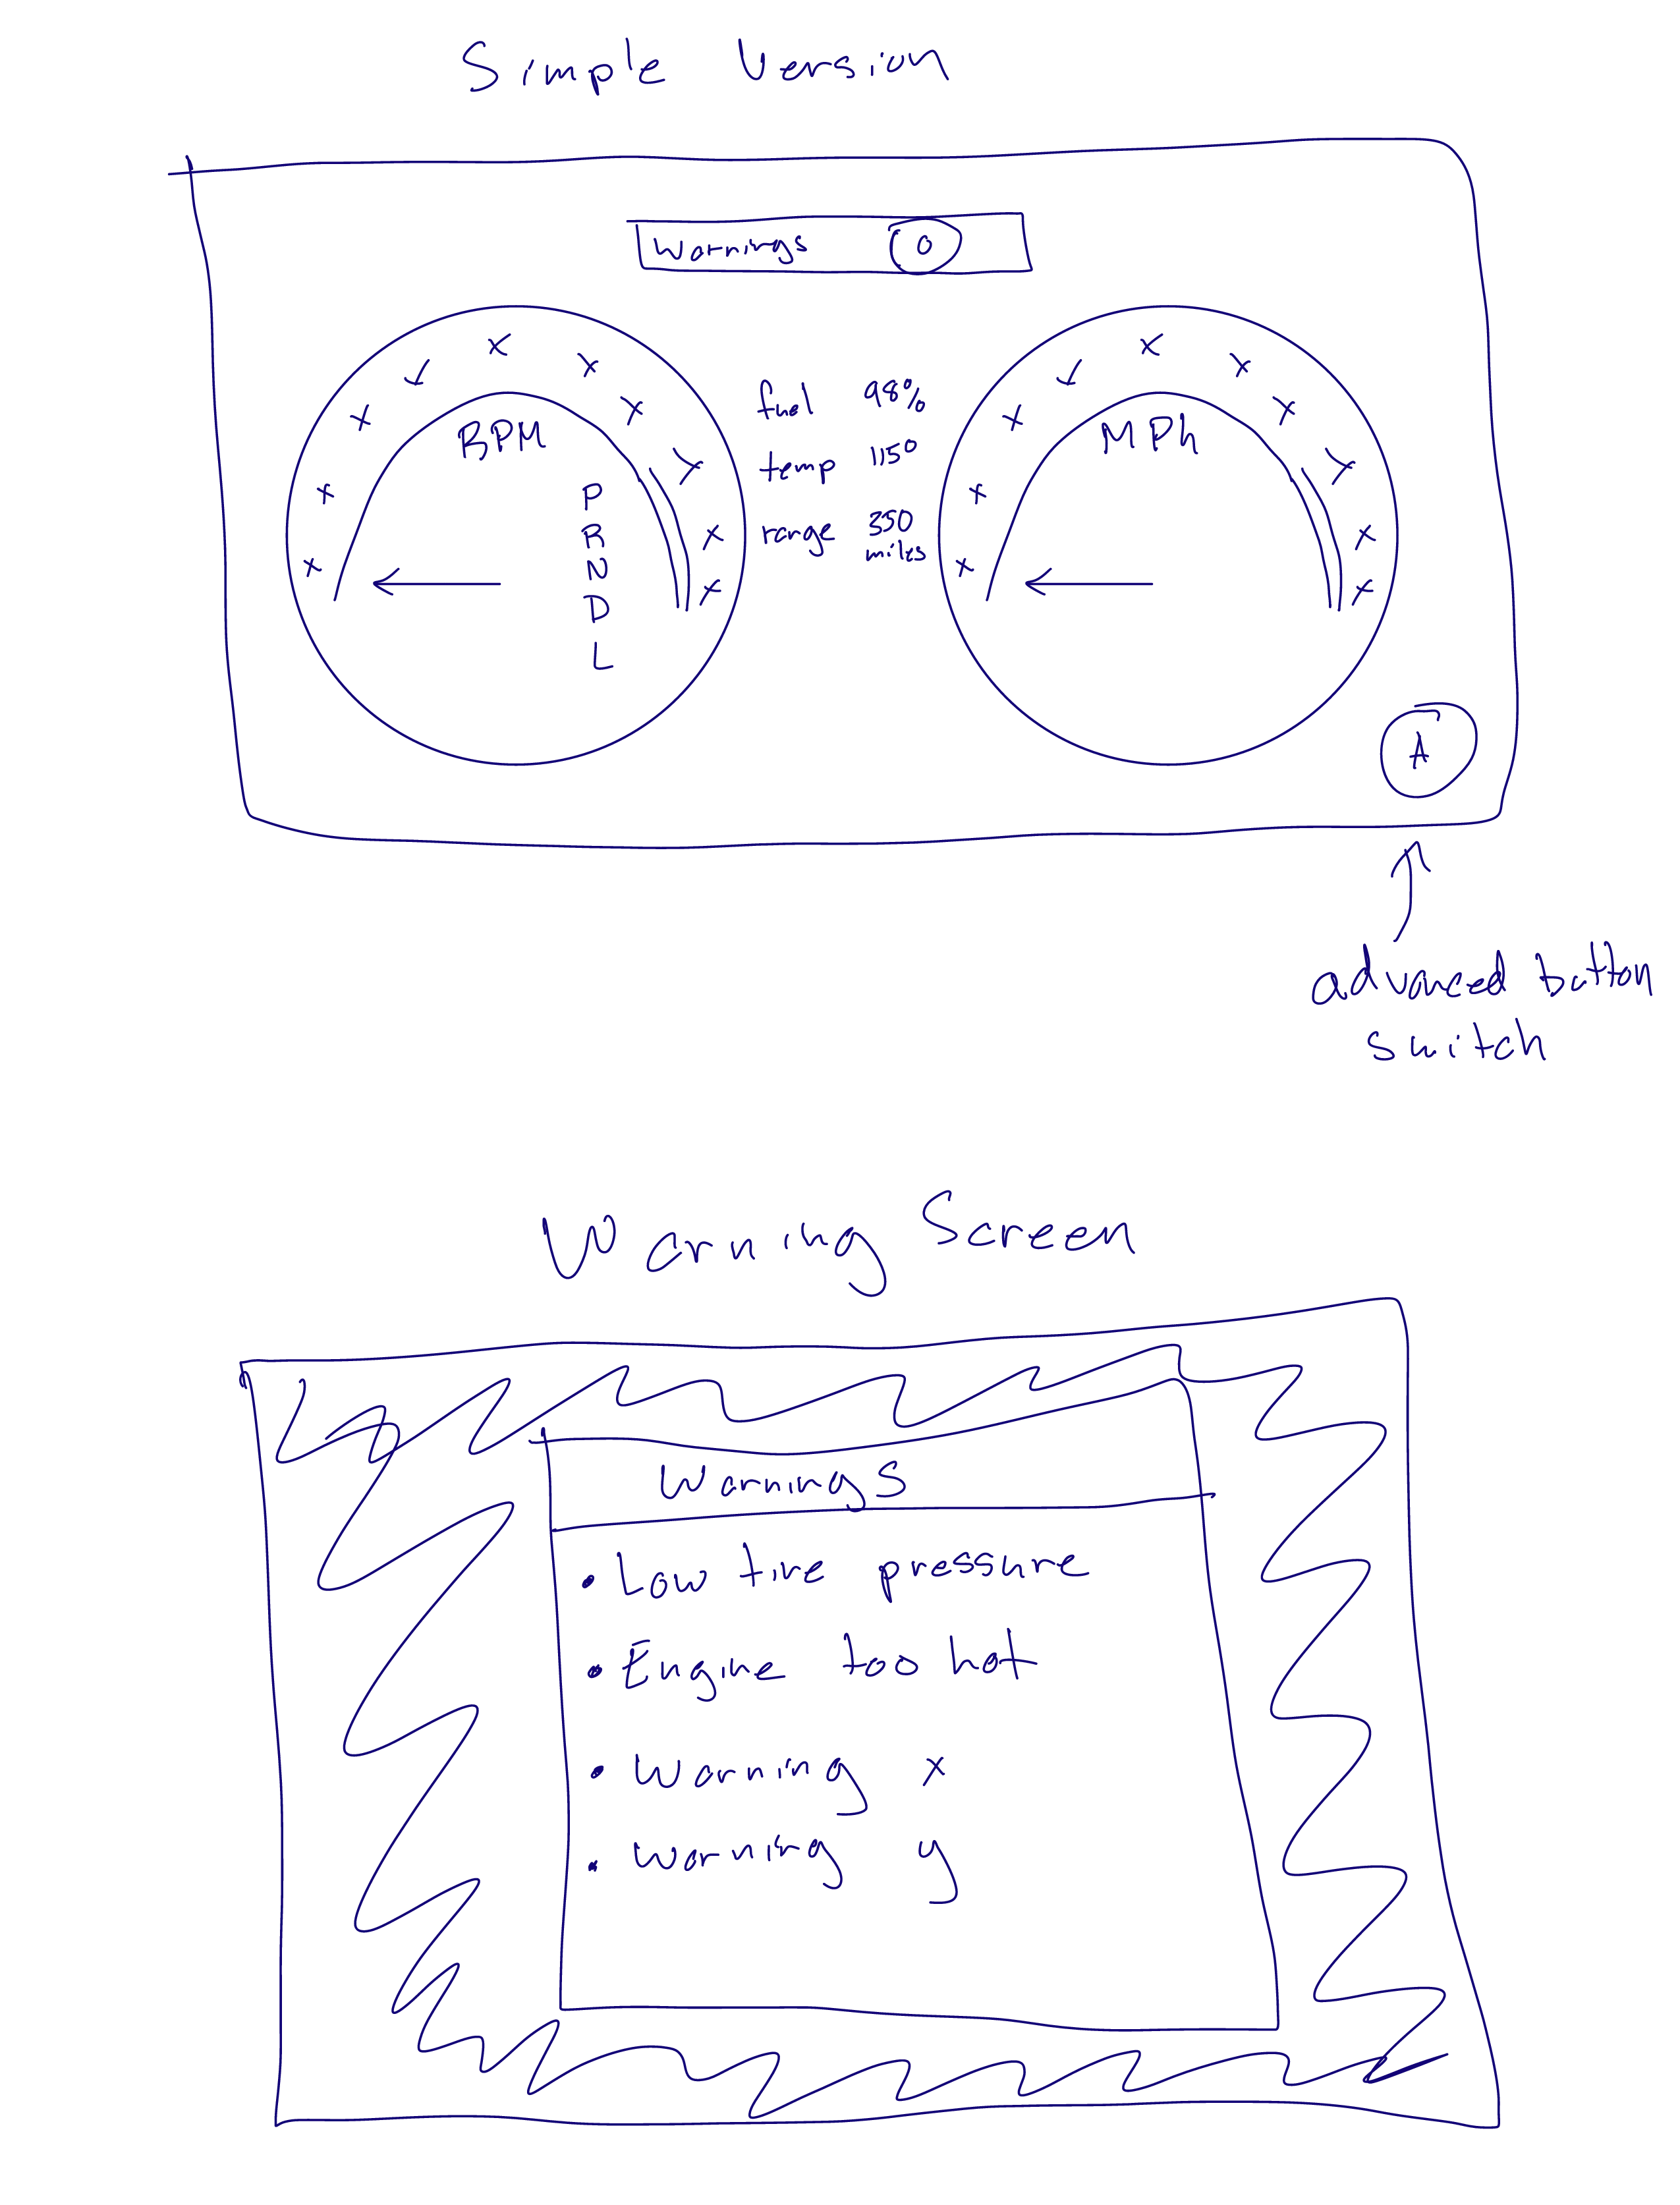 Simple Version
Warnings 0
RPM
P
R
N
D
L
fuel 98%
temp 115°
range 350
miles
MPh
A
advanced button
switch
Warning Screen
Warnings
• Low tire pressure
• Engine too hot
• Warning x
• Warning y